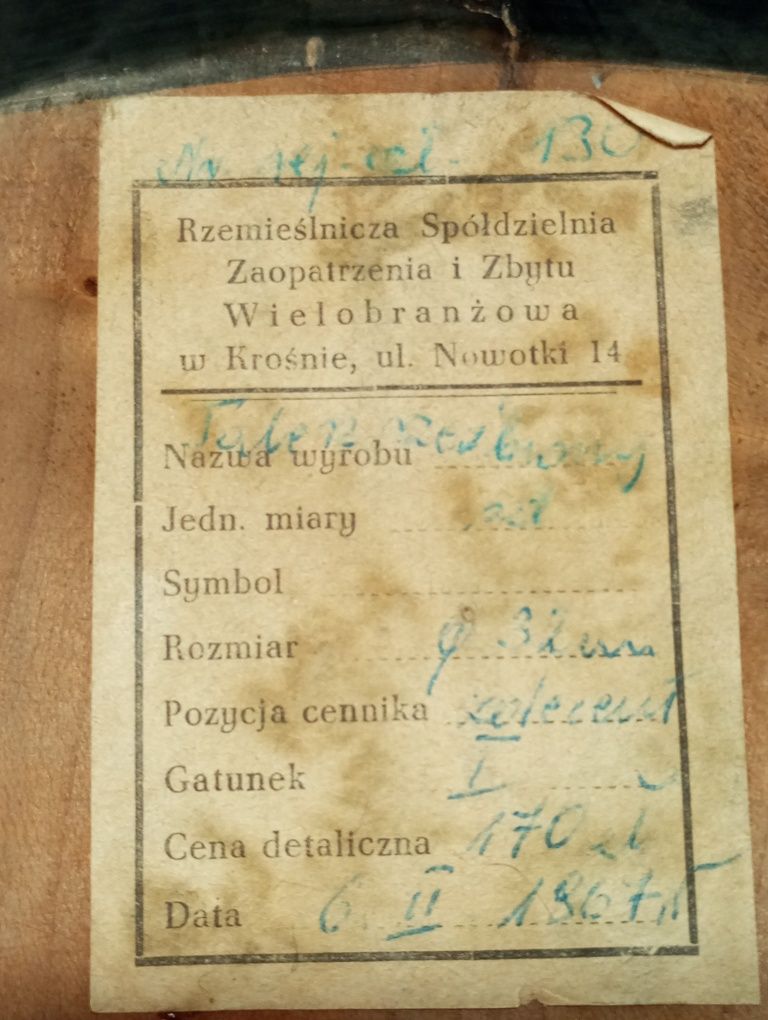 Nr. rej. 130
Rzemieślnicza Spółdzielnia
Zaopatrzenia i Zbytu
Wielobranżowa
w Krośnie, ul. Nowotki 14
Nazwa wyrobu Talerz rzeźbiony
Jedn. miary szt
Symbol
Rozmiar φ 32 cm
Pozycja cennika
Gatunek I
Cena detaliczna 170 zł
Data 6. II 1967 r